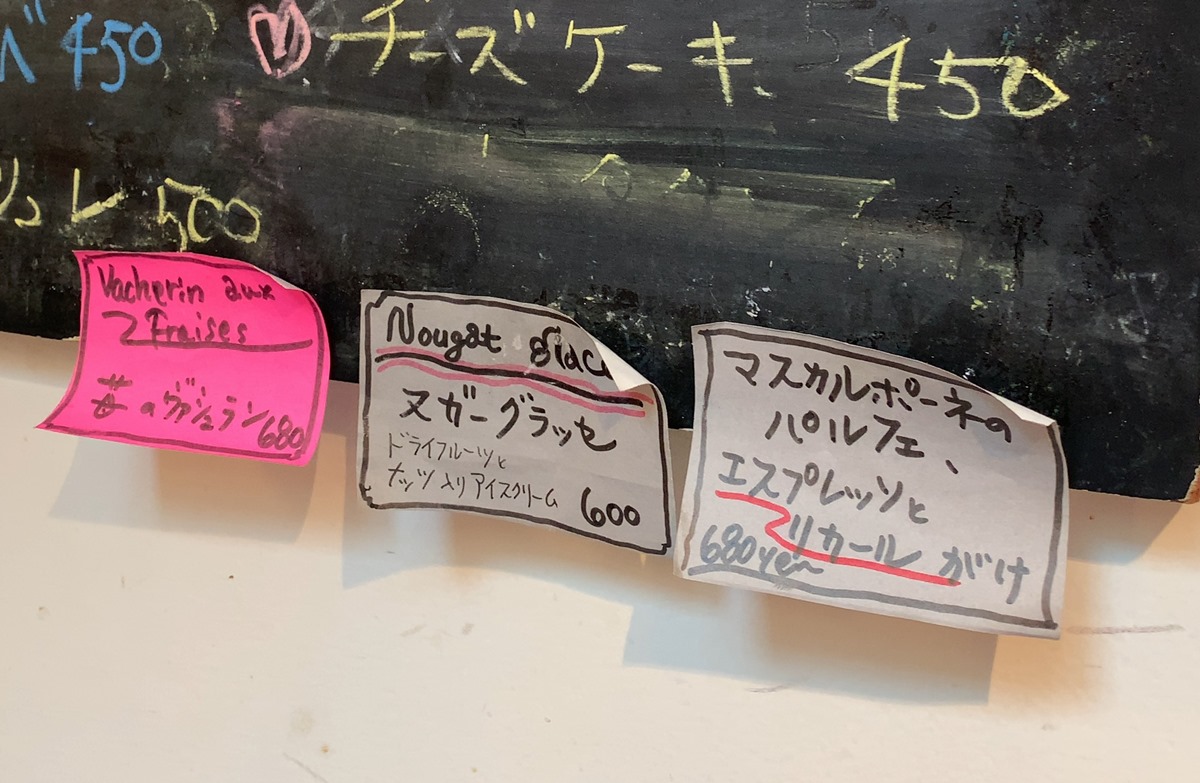 450
チーズケーキ 450
ュレ 500
Vacherin aux
Fraises
苺のヴァシュラン 680
Nougat glac
ヌガーグラッセ
ドライフルーツと
ナッツ入りアイスクリーム 600
マスカルポーネの
パルフェ、
エスプレッソと
リカールがけ
680yen